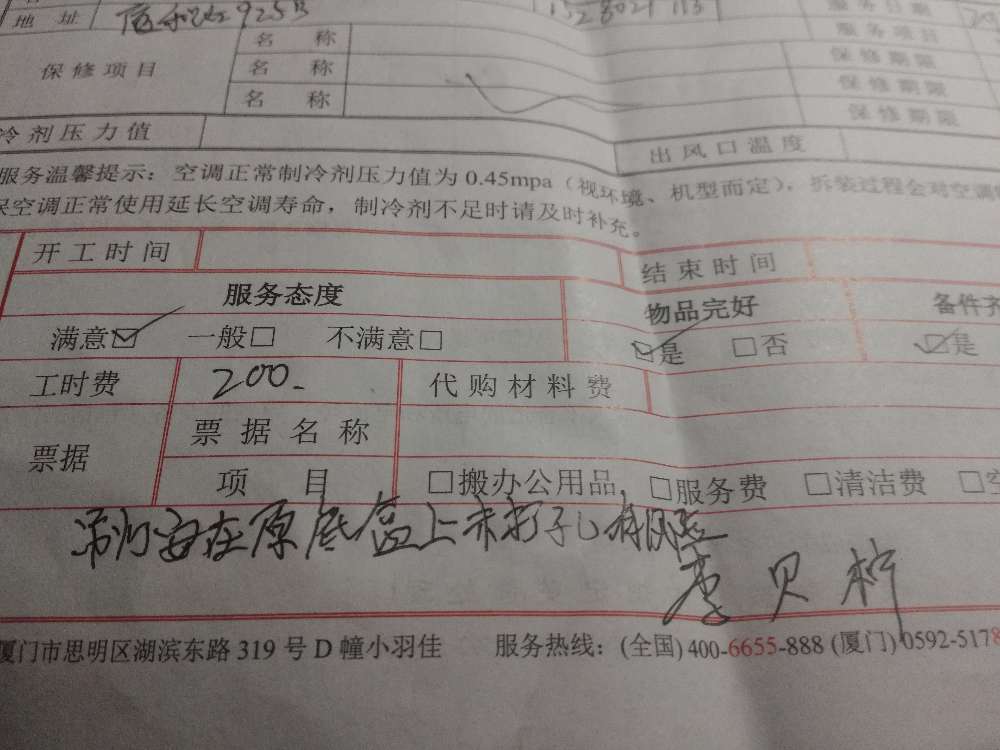 地址 925B 服务日期
保修项目 名称 服务项目
名称 保修期限
名称 保修期限
保修期限
冷剂压力值 出风口温度
服务温馨提示：空调正常制冷剂压力值为0.45mpa（视环境、机型而定），拆装过程会对空调
保空调正常使用延长空调寿命，制冷剂不足时请及时补充。
开工时间 结束时间
服务态度 物品完好 备件齐
满意☑ 一般□ 不满意□ ☑是 □否 ☑是
工时费 200- 代购材料费
票据 票据名称
项目 □搬办公用品， □服务费 □清洁费 □空
吊灯安在原底盒上未打孔有风险
李贝柠
厦门市思明区湖滨东路319号D幢小羽佳 服务热线：(全国)400-6655-888 (厦门)0592-5178